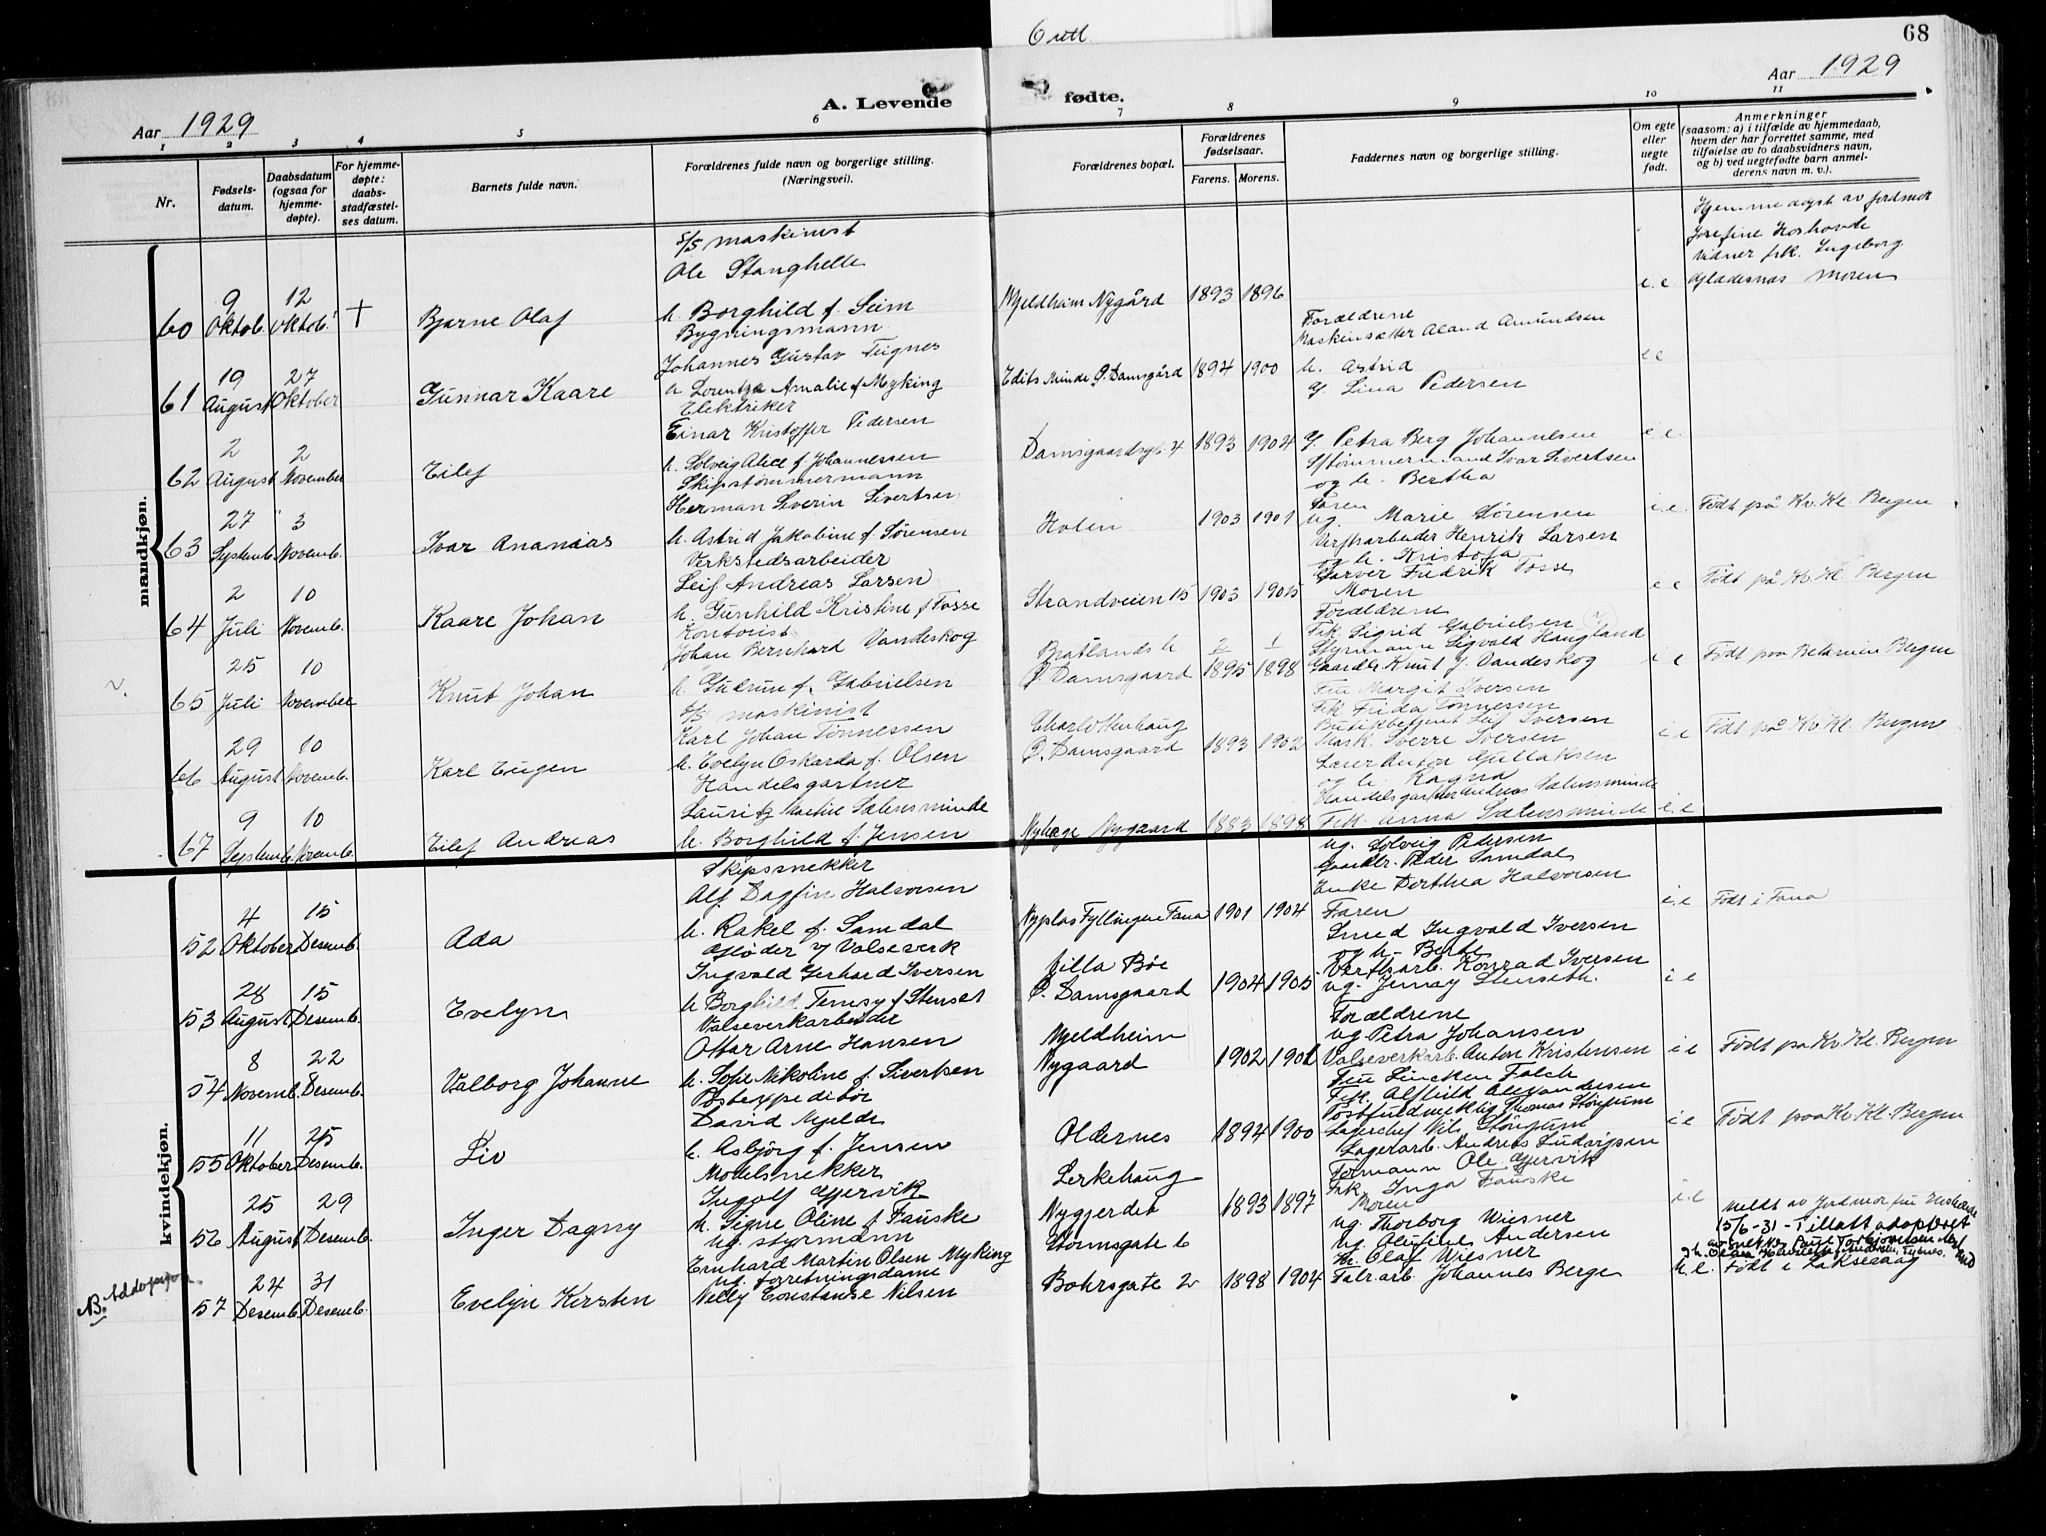 6 utl.
68
Aar 1929
A. Levende fødte.
Aar 1929
1 2 3 4 5 6 7 8 9 10 11
Nr.
Fødsels-datum.
Daabsdatum (ogsaa for hjemme-døpte).
For hjemme-døpte: daabs-stadfæstel-ses datum.
Barnets fulde navn.
Forældrenes fulde navn og borgerlige stilling. (Næringsvei).
Forældrenes bopæl.
Forældrenes fødselsaar.
Farens. Morens.
Faddernes navn og borgerlige stilling.
Om egte eller uegte født.
Anmerkninger
(saasom: a) i tilfælde av hjemmedaab,
hvem der har forrettet samme, med
tilføielse av to daabsvidners navn,
og b) ved uegtefødte barn anmel-
derens navn m. v.).
mandkjøn.
60 9 Oktob. 12 Oktob. + Bjarne Olaf
S/S maskinist
Ole Stanghelle
h. Borghild f. Seim
Mjeldheim Nygård 1893 1896
Forældrene
e.e
Hjemmedøpt av jordmor
Josefine Hoshovde
Vidner frk. Ingeborg
Gladesnas Moren
61 19 August 27 Oktober Gunnar Kaare
Bygningsmann
Johannes Gustav Teignes
h. Lorentza Amalie f. Myking
Edits Minde Ø. Damsgård 1894 1900
Maskinsetter Aland Amundsen
h. Astrid
g. Lina Pedersen
e e
62 2 August 2 November Eilef
Elektriker
Einar Kristoffer Pedersen
h. Solveig Alice f. Johannessen
Damsgaardsgt. 4 1893 1904
g. Petra Berg Johannesen
e e.
63 27 Septemb. 3 Novemb. Ivar Ananias
Skipstømmermann
Herman Severin Sivertsen
h. Astrid Jakobine f. Sørensen
Holen 1903 1901
S/tømmermand Ivar Sivertsen
og h. Bertha
Faren
ug. Marie Sørensen
e.e
Født på Kv. Kl. Bergen
64 2 Juli 10 Novemb. Kaare Johan
Verkstedsarbeider
Leif Andreas Larsen
h. Gunhild Kristine f. Fosse
Strandveien 15 1903 1905
Verftsarbeider Henrik Larsen
og h. Kristofa
Garver Fredrik Fosse
Moren
e e
Født på Kv. Kl. Bergen
65 25 Juli 10 November Knut Johan
Kontorist
Johan Bernhard Vandeskog
h. Gudrun f. Gabrielsen
Bratlands h.
Ø. Damsgaard 1895 1898
Forældrene
Frk. Sigrid Gabrielsen
Styrmann Sigvald Haugland
Gaardbr. Knut J. Vandeskog
e e
Født paa Betanien Bergen
66 29 August 10 Novemb. Karl Eugen
S/S maskinist
Karl Johan Tønnessen
h. Evelyn Oskarda f. Olsen
Charlottenhaug
Ø. Damsgaard 1893 1902
Fru Margit Iversen
Frk Frida Tønnessen
Butikbetjent Leif Iversen
Mask. Sverre Iversen
e e
Født på Kv. Kl. Bergen
67 9 Septemb. 10 Novemb. Eilef Andreas
Handelsgartner
Lauritz Martin Sætensminde
h. Borghild f. Jensen
Nyhage Nygaard 1883 1898
Lærer Anton Gullaksen
og h. Ragna
Handelsgartner Andreas Sætensminde
Frk. Anna Sætensminde
e.e
kvindekjøn.
52 4 Oktober 15 Desemb. Ada
Skipssnekker
Alf Dagfin Halvorsen
h. Rakel f. Samdal
Nyplas Fyllingen Fana 1901 1904
ug. Solveig Pedersen
Gaardbr. Peder Samdal
Enke Dorthea Halvorsen
Faren
e.e
Født i Fana
53 28 August 15 Desemb. Evelyn
Gløder v/ Valseverk
Ingvald Gerhard Iversen
h. Borghild Temsy f. Stenset
Villa Bøe
Ø. Damsgaard 1904 1905
Smed Ingvald Iversen
og h. Berte
Verftsarb. Konrad Iversen
ug. Jenny Stenseth.
e e
54 8 Novemb. 22 Desemb. Valborg Johanne
Valseverkarbeider
Ottar Arne Hansen
h. Sofie Nikoline f. Sivertsen
Mjeldheim
Nygaard 1902 1901
Forældrene
ug Petra Johansen
Valseverkarb. Anton Kristensen
e e
Født på Kv. Kl. Bergen
55 11 Oktober 25 Desemb. Liv
Postexpeditør
David Mjelde
h. Asbjørg f. Jensen
Oldernes 1894 1900
Fru Lincken Falch
Frk. Alfhild Alexandersen
Lagerchef Nils
Lagerarb. Andreas Ludvigsen
e e
Født paa Kv. Kl. Bergen
56 25 August 29 Desemb. Inger Dagny
Modelsnekker
Ingolf Gjervik
h. Signe Oline f. Fauske
Lerkehaug
Nygjerdet 1893 1897
Formann Ole Gjervik
Frk Inga Fauske
Moren
e.e
N.B. Addopsjon
57 24 Desemb. 31 Desemb. Evelyn Kirsten
ug. styrmann
Ernhard Martin Olsen Myking
ug. forretningsdame
Nelly Constanse Nilsen
Stormsgate 6
Bohrsgate 2 1898 1904
ug. Thorborg Wiesner
ug. Olufine Andersen
Hr. Olaf Wiesner
Fabr.arb. Johannes Berge
u.e.
Meldt av Jordmor fru
15/6-31 - Tillatt adoptert
Født i Laksevaag